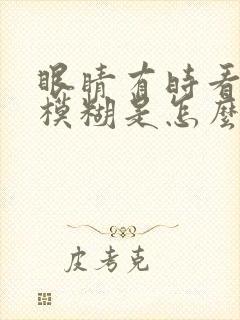 眼睛有時看
模糊是怎麼
皮考克